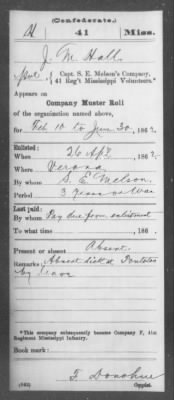 (Confederate.)
H 41 Miss.
J. M. Hall
Pvt, Capt. S. E. Melson's Company,
41 Reg't Mississippi Volunteers.*
Appears on
Company Muster Roll
of the organization named above,
for Feb 10 to June 30, 1862.
Enlisted:
When 26 Apl, 1862.
Where Verona
By whom S. E. Melson
Period 3 years or War
Last paid:
By whom Pay due from enlistment
To what time , 186 .
Present or absent Absent
Remarks: Absent sick at Pontotoc
by leave
*This company subsequently became Company F, 41st
Regiment Mississippi Infantry.
Book mark:
(642) F. Donohue
Copyist.